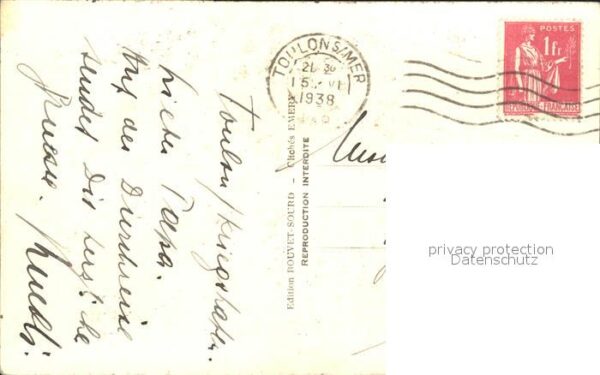 Toulon / Kriegshafen.
Lieber Papa.
Auf der Durchreise
sendet Dir herzliche
Grüsse.
Ruedi.
Edition BOUVET-SOURD - Clichés EMERY
REPRODUCTION INTERDITE
TOULON S/MER
21 30
15 VI
1938
POSTES
1fr
REPUBLIQUE FRANÇAISE
privacy protection
Datenschutz